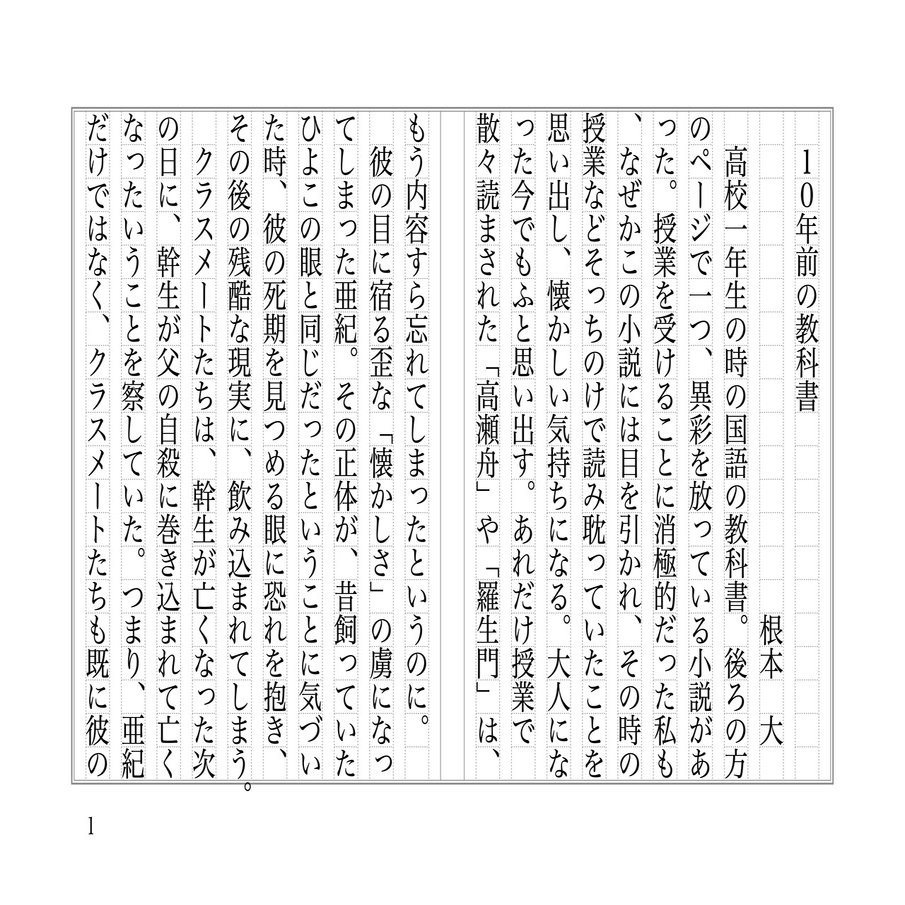 10年前の教科書
根本　大
高校一年生の時の国語の教科書。後ろの方
のページで一つ、異彩を放っている小説があ
った。授業を受けることに消極的だった私も
、なぜかこの小説には目を引かれ、その時の
授業などそっちのけで読み耽っていたことを
思い出し、懐かしい気持ちになる。大人にな
った今でもふと思い出す。あれだけ授業で
散々読まされた「高瀬舟」や「羅生門」は、
もう内容すら忘れてしまったというのに。
彼の目に宿る歪な「懐かしさ」の虜になっ
てしまった亜紀。その正体が、昔飼っていた
ひよこの眼と同じだったということに気づい
た時、彼の死期を見つめる眼に恐れを抱き、
その後の残酷な現実に、飲み込まれてしまう。
クラスメートたちは、幹生が亡くなった次
の日に、幹生が父の自殺に巻き込まれて亡く
なったいうことを察していた。つまり、亜紀
だけではなく、クラスメートたちも既に彼の
1